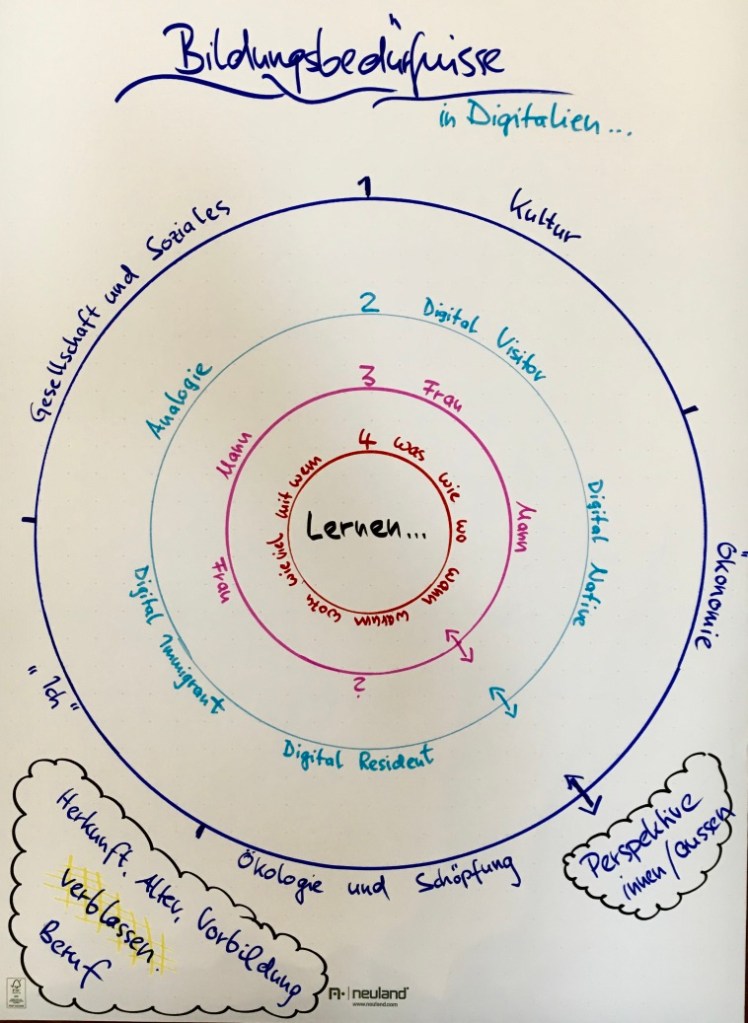 Bildungsbedürfnisse
in Digitalien...
1
Kultur
Ökonomie
Ökologie und Schöpfung
"Ich"
Gesellschaft und Soziales
2
Digital Visitor
Digital Native
Digital Resident
Digital Immigrant
Analogie
3
Frau
Mann
?
Frau
Mann
4
was
wie
wo
wann
warum
wozu
wieviel
mit wem
Lernen...
Herkunft, Alter, Vorbildung
verblassen.
Beruf
Perspektive
innen/aussen
neuland
www.neuland.com
FSC